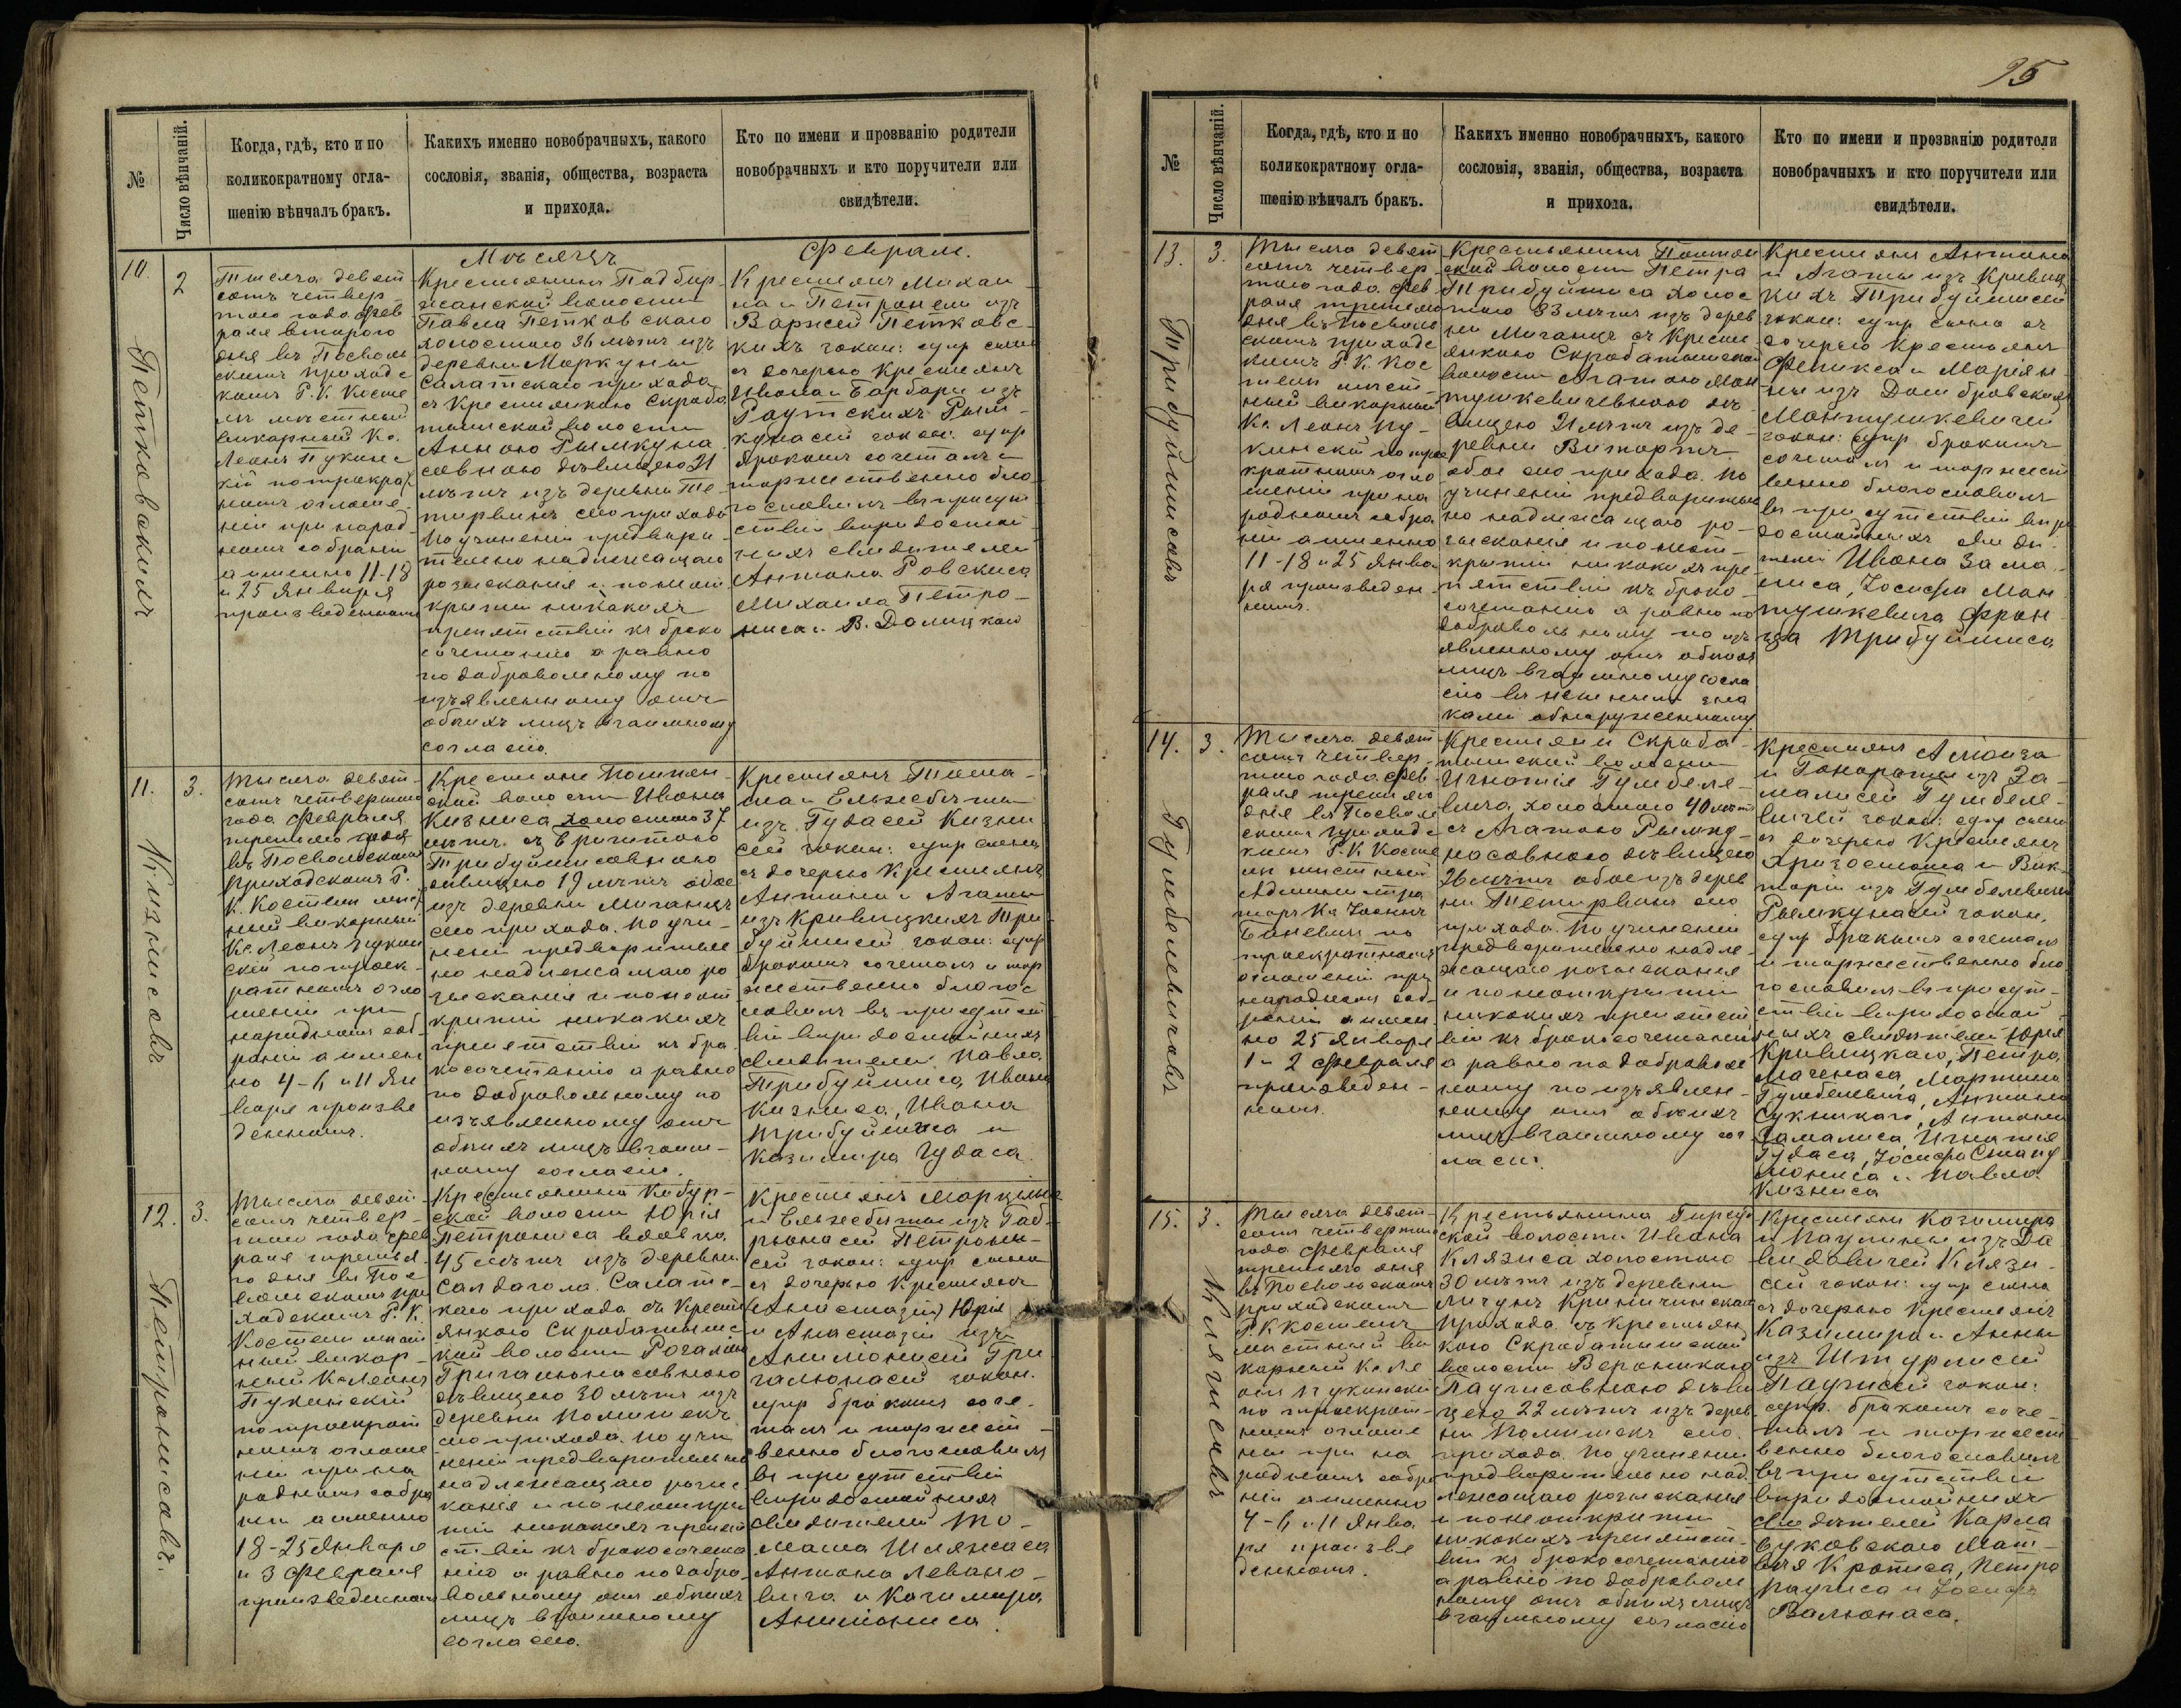 №
Число вѣнчаній.
Когда, гдѣ, кто и по
коликократному огла-
шенію вѣнчалъ бракъ.
Какихъ именно новобрачныхъ, какого
сословія, званія, общества, возраста
и прихода.
Кто по имени и прозванію родители
новобрачныхъ и кто поручители или
свидѣтели.
Мѣсяцъ
Февраль.
10.
2
Тысяча девят
сотъ четвер
таго года Фев
раля второго
дня въ Посволь
скомъ приходс
комъ Р. К. Косте
лѣ мѣстный
викарный Кс.
Леонъ Пукинс
кій по трекра
номъ оглаше
ніи при народ
номъ собраніи
а именно 11-18
и 25 Января
произведенномъ
Крестьянина Подбир
жанской волости
Павла Петковскаго
холостаго 36 лѣтъ изъ
деревни Маркуны
Салатскаго прихода
съ Крестьянкою Скроба
тышской волости
Анною Рымкуна
совною дѣвицею 21
лѣтъ изъ деревни Те
тирвинъ сего прихода
По учиненіи предвари
тельно надлежащаго
розысканія и по неот
крытіи никакихъ
препятствій къ брако
сочетанію а равно
по добровольному по
изъявленному отъ
обоихъ лицъ взаимному
согласію.
Крестьянъ Михаи
ла и Петронели изъ
Варжей Петковс
кихъ закон: супр сына
съ дочерью Крестьянъ
Ивана и Барбары изъ
Раутскихъ Рым
кунасей закон: супр
бракомъ сочеталъ и
торжественно бла
гословилъ въ присут
ствіи вѣродостой
ныхъ свидѣтелей
Антона Ровскиса
Михаила Петро
ниса и В. Долицкаго
Петковскихъ
11.
3.
Тысяча девят
сотъ четвертаго
года Февраля
третьяго дня
въ Посвольскомъ
Приходскомъ Р.
К. Костелѣ мѣст
ный викарный
Кс. Леонъ Пукин
скій по троек
ратномъ огла
шеніи при
народномъ соб
раніи а имен
но 4-6 и 11 Ян
варя произве
денномъ.
Крестьянина Помпян
ской волости Ивана
Кизниса холостаго 37
лѣтъ съ Бригитою
Трибуйшисовною
дѣвицею 19 лѣтъ обое
изъ деревни Миганцъ
сего прихода. По учи
неніи предваритель
но надлежащаго ро
зысканія и по неот
крытіи никакихъ
препятствій къ бра
косочетанію а равно
по добровольному по
изъявленному отъ
обоихъ лицъ взаим
ному согласію.
Крестьянъ Тома
ша и Ельжбеты
изъ Гудасей Кизни
сей закон: супр сына
съ дочерью Крестьянъ
Антона и Агаты
изъ Кривицкихъ Три
буйшисей закон: супр
бракомъ сочеталъ и тор
жественно благос
ловилъ въ присутст
віи вѣродостойныхъ
свидѣтелей: Павла
Трибуйшиса, Ивана
Кизниса, Ивана
Трибуйшиса и
Казимира Гудаса.
Кизнисовъ
12.
3.
Тысяча девят
сотъ четвер
таго года Фев
раля третья
го дня въ Пос
вольскомъ при
ходскомъ Р. К.
Костелѣ мѣст
ный викар
ный Кс. Леонъ
Пукинскій
по троекрат
номъ оглаше
ніи при на
родномъ собра
ніи а именно
18-25 Января
и 3 Февраля
произведенномъ
Крестьянина Кобур
ской волости Юрія
Петрониса вдовца
45 лѣтъ изъ деревни
Салдагола Салатс
каго прихода съ Крест
янкою Скробатышс
кой волости Розалію
Григалюнасовною
дѣвицею 30 лѣтъ изъ
деревни Помишекъ
сего прихода. По учи
неніи предварительно
надлежащаго розыс
канія и по неоткры
тіи никакихъ препят
ствій къ бракосочета
нію а равно по добро
вольному отъ обоихъ
лицъ взаимному
согласію.
Крестьянъ Марціана
и Ельжбеты изъ Габ
рюнасей Петрони
сей закон: супр сына
съ дочерью Крестьянъ
(Анастазіи) Юрія
и Анастазіи изъ
Анилонисей Гри
галюнасей закон.
супр бракомъ соче
талъ и торжест
венно благословилъ
въ присутствіи
вѣродостойныхъ
свидѣтелей То
маша Шляжаса
Антона Левано
вича и Казимира
Анилониса.
Петронисовъ.
95
№
Число вѣнчаній.
Когда, гдѣ, кто и по
коликократному огла-
шенію вѣнчалъ бракъ.
Какихъ именно новобрачныхъ, какого
сословія, званія, общества, возраста
и прихода.
Кто по имени и прозванію родители
новобрачныхъ и кто поручители или
свидѣтели.
13.
3.
Тысяча девят
сотъ четвер
таго года Фев
раля третьяго
дня въ Посволь
скомъ приходс
комъ Р. К. Кос
телѣ мѣст
ный викарный
Кс. Леонъ Пу
кинскій по трое
кратномъ огла
шеніи при на
родномъ собра
ніи а именно
11-18 и 25 Янва
ря произведен
номъ.
Крестьянина Понтон
ской волости Петра
Трибуйшиса холос
таго 33 лѣтъ изъ дерев
ни Миганцъ съ Крестья
янкою Скробатышской
волости Агатою Ман
тушкевичевною дѣ
вицею 21 лѣтъ изъ де
ревни Витартъ
обое сего прихода. По
учиненіи предваритель
но надлежащаго ро
зысканія и по неот
крытіи никакихъ пре
пятствій къ брако
сочетанію а равно по
добровольному по изъ
явленному отъ обоихъ
лицъ взаимному согла
сію внѣшними зна
ками обнаруженному
Крестьянъ Антона
и Агаты изъ Кривиц
кихъ Трибуйшисей
закон: супр сына съ
дочерью Крестьянъ
Феликса и Маріан
ны изъ Домбровскихъ
Мантушкевичей
закон: супр. бракомъ
сочеталъ и торжест
венно благословилъ
въ присутствіи вѣро
достойныхъ свидѣ
телей Ивана Зама
лиса, Іосифа Ман
тушкевича Фран
ца Трибуйшиса
Трибуйшисовъ
14.
3.
Тысяча девят
сотъ четвер
таго года Фев
раля третьяго
дня въ Посволь
скомъ приходс
комъ Р. К. Косте
лѣ мѣстный
Администра
торъ Кс. Іосифъ
Баневичъ по
троекратномъ
оглашеніи при
народномъ соб
раніи а имен
но 25 Января
1 и 2 Февраля
произведен
номъ.
Крестьянина Скроба
тышской волости
Игнатія Гумбеле
вича, холостаго 40 лѣтъ
съ Агатою Рымку
насовною дѣвицею
26 лѣтъ обое изъ дерев
ни Тетирвинъ сего
прихода. По учиненіи
предварительно надле
жащаго розысканія
и по неоткрытіи
никакихъ препятст
вій къ бракосочетанію
а равно по доброволь
ному по изъявлен
ному отъ обоихъ
лицъ взаимному сог
ласію.
Крестьянъ Алоиза
и Гонораты изъ За
малисей Гумбеле
вичей закон: супр сына
съ дочерью Крестьянъ
Хризостома и Вик
торіи изъ Гумбелевичей
Рымкунасей закон,
супр бракомъ сочеталъ
и торжественно бла
гословилъ въ присут
ствіи вѣродостой
ныхъ свидѣтелей Юрія
Кривицкаго, Петра
Маченаса, Мартина
Гумбелевича, Антона
Сукницкаго, Антона
Замалиса, Игнатія
Гудаса, Іосифа Стану
лониса и Павла
Кизниса
Гумбелевичовъ
15.
3.
Тысяча девят
сотъ четвертаго
года Февраля
третьяго дня
въ Посвольскомъ
приходскомъ
Р. К Костелѣ
мѣстный ви
карный Кс. Ле
онъ Пукинскій
по троекрат
номъ оглаше
ніи при на
родномъ собра
ніи а именно
4-6 и 11 Янва
ря произве
денномъ.
Крестьянина Гиргуд
ской волости Ивана
Клязиса холостаго
30 лѣтъ изъ деревни
Личунъ Криничинскаго
прихода съ крестьян
кою Скробатышской
волости Вероникою
Паузисовною дѣви
цею 22 лѣтъ изъ дерев
ни Помишекъ сего
прихода. По учиненіи
предварительно над
лежащаго розысканія
и по неоткрытіи
никакихъ препятст
вій къ бракосочетанію
а равно по доброволь
ному отъ обоихъ лицъ
взаимному согласію
Крестьянъ Казимира
и Паулины изъ Да
видовичей Клязи
сей закон: супр сына
съ дочерью Крестьянъ
Казимира и Анны
изъ Штурлисей
Паузисей закон:
супр. бракомъ соче
талъ и торжест
венно благословилъ
въ присутствіи
вѣродостойныхъ
свидѣтелей Карла
Буковскаго Мат
вѣя Крописа, Петра
Раузиса и Іосифа
Валюнаса.
Клязисовъ